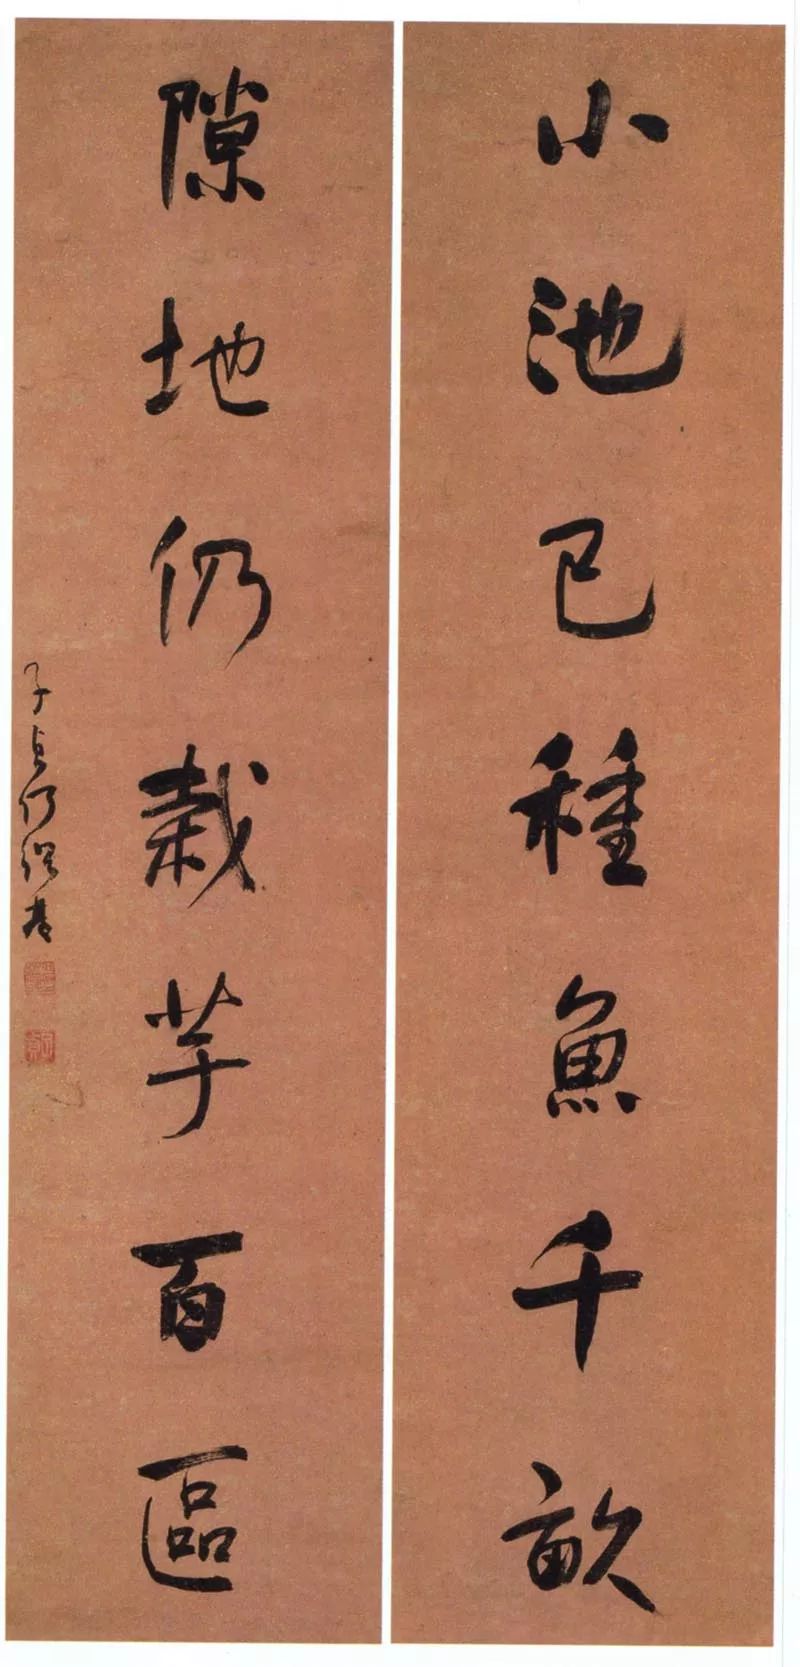 小池已種魚千畝
隙地仍栽芋百區
子貞何紹基